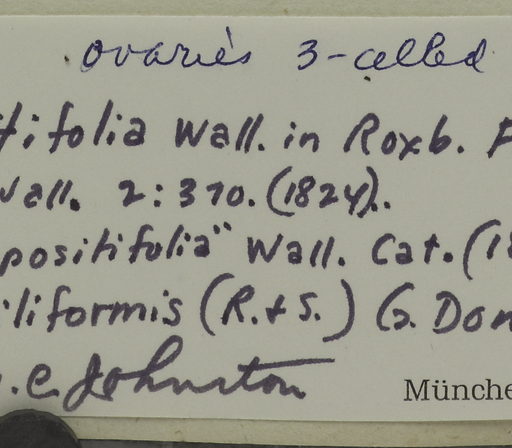 ovaries 3-celled
tifolia Wall. in Roxb. F
Wall. 2:370. (1824).
positifolia" Wall. Cat. (18
iliformis (R.+S.) G. Don
.C. Johnston
Münche